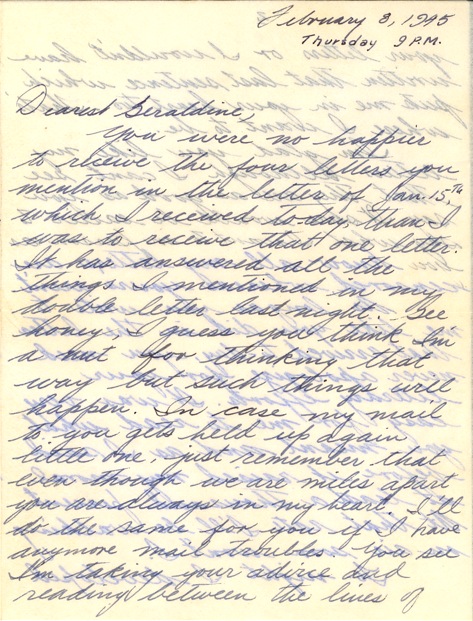 February 8, 1945
Thursday 9 P.M.
Dearest Geraldine,
You were no happier
to receive the four letters you
mention in the letter of Jan. 15,TH
which I received to-day, than I
was to receive that one letter.
It has answered all the
things I mentioned in my
double letter last night. Gee
honey, I guess you think I'm
a nut for thinking that
way but such things will
happen. In case my mail
to you gets held up again
little one just remember that
even though we are miles apart
you are always in my heart. I'll
do the same for you if I have
anymore mail troubles. You see
I'm taking your advice and
reading between the lines of